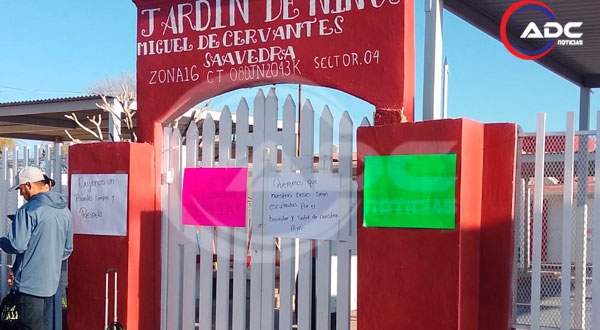 JARDIN DE NIÑOS
MIGUEL DE CERVANTES
SAAVEDRA
ZONA16 CT 08DJN2043K SECTOR.04
ADC
NOTICIAS
Exigimos un
Plantel Limpio y
Respeto
Queremos que
nuestras voces sean
escuchadas Por el
bienestar y salud de nuestros
hijos
ADC
NOTICIAS